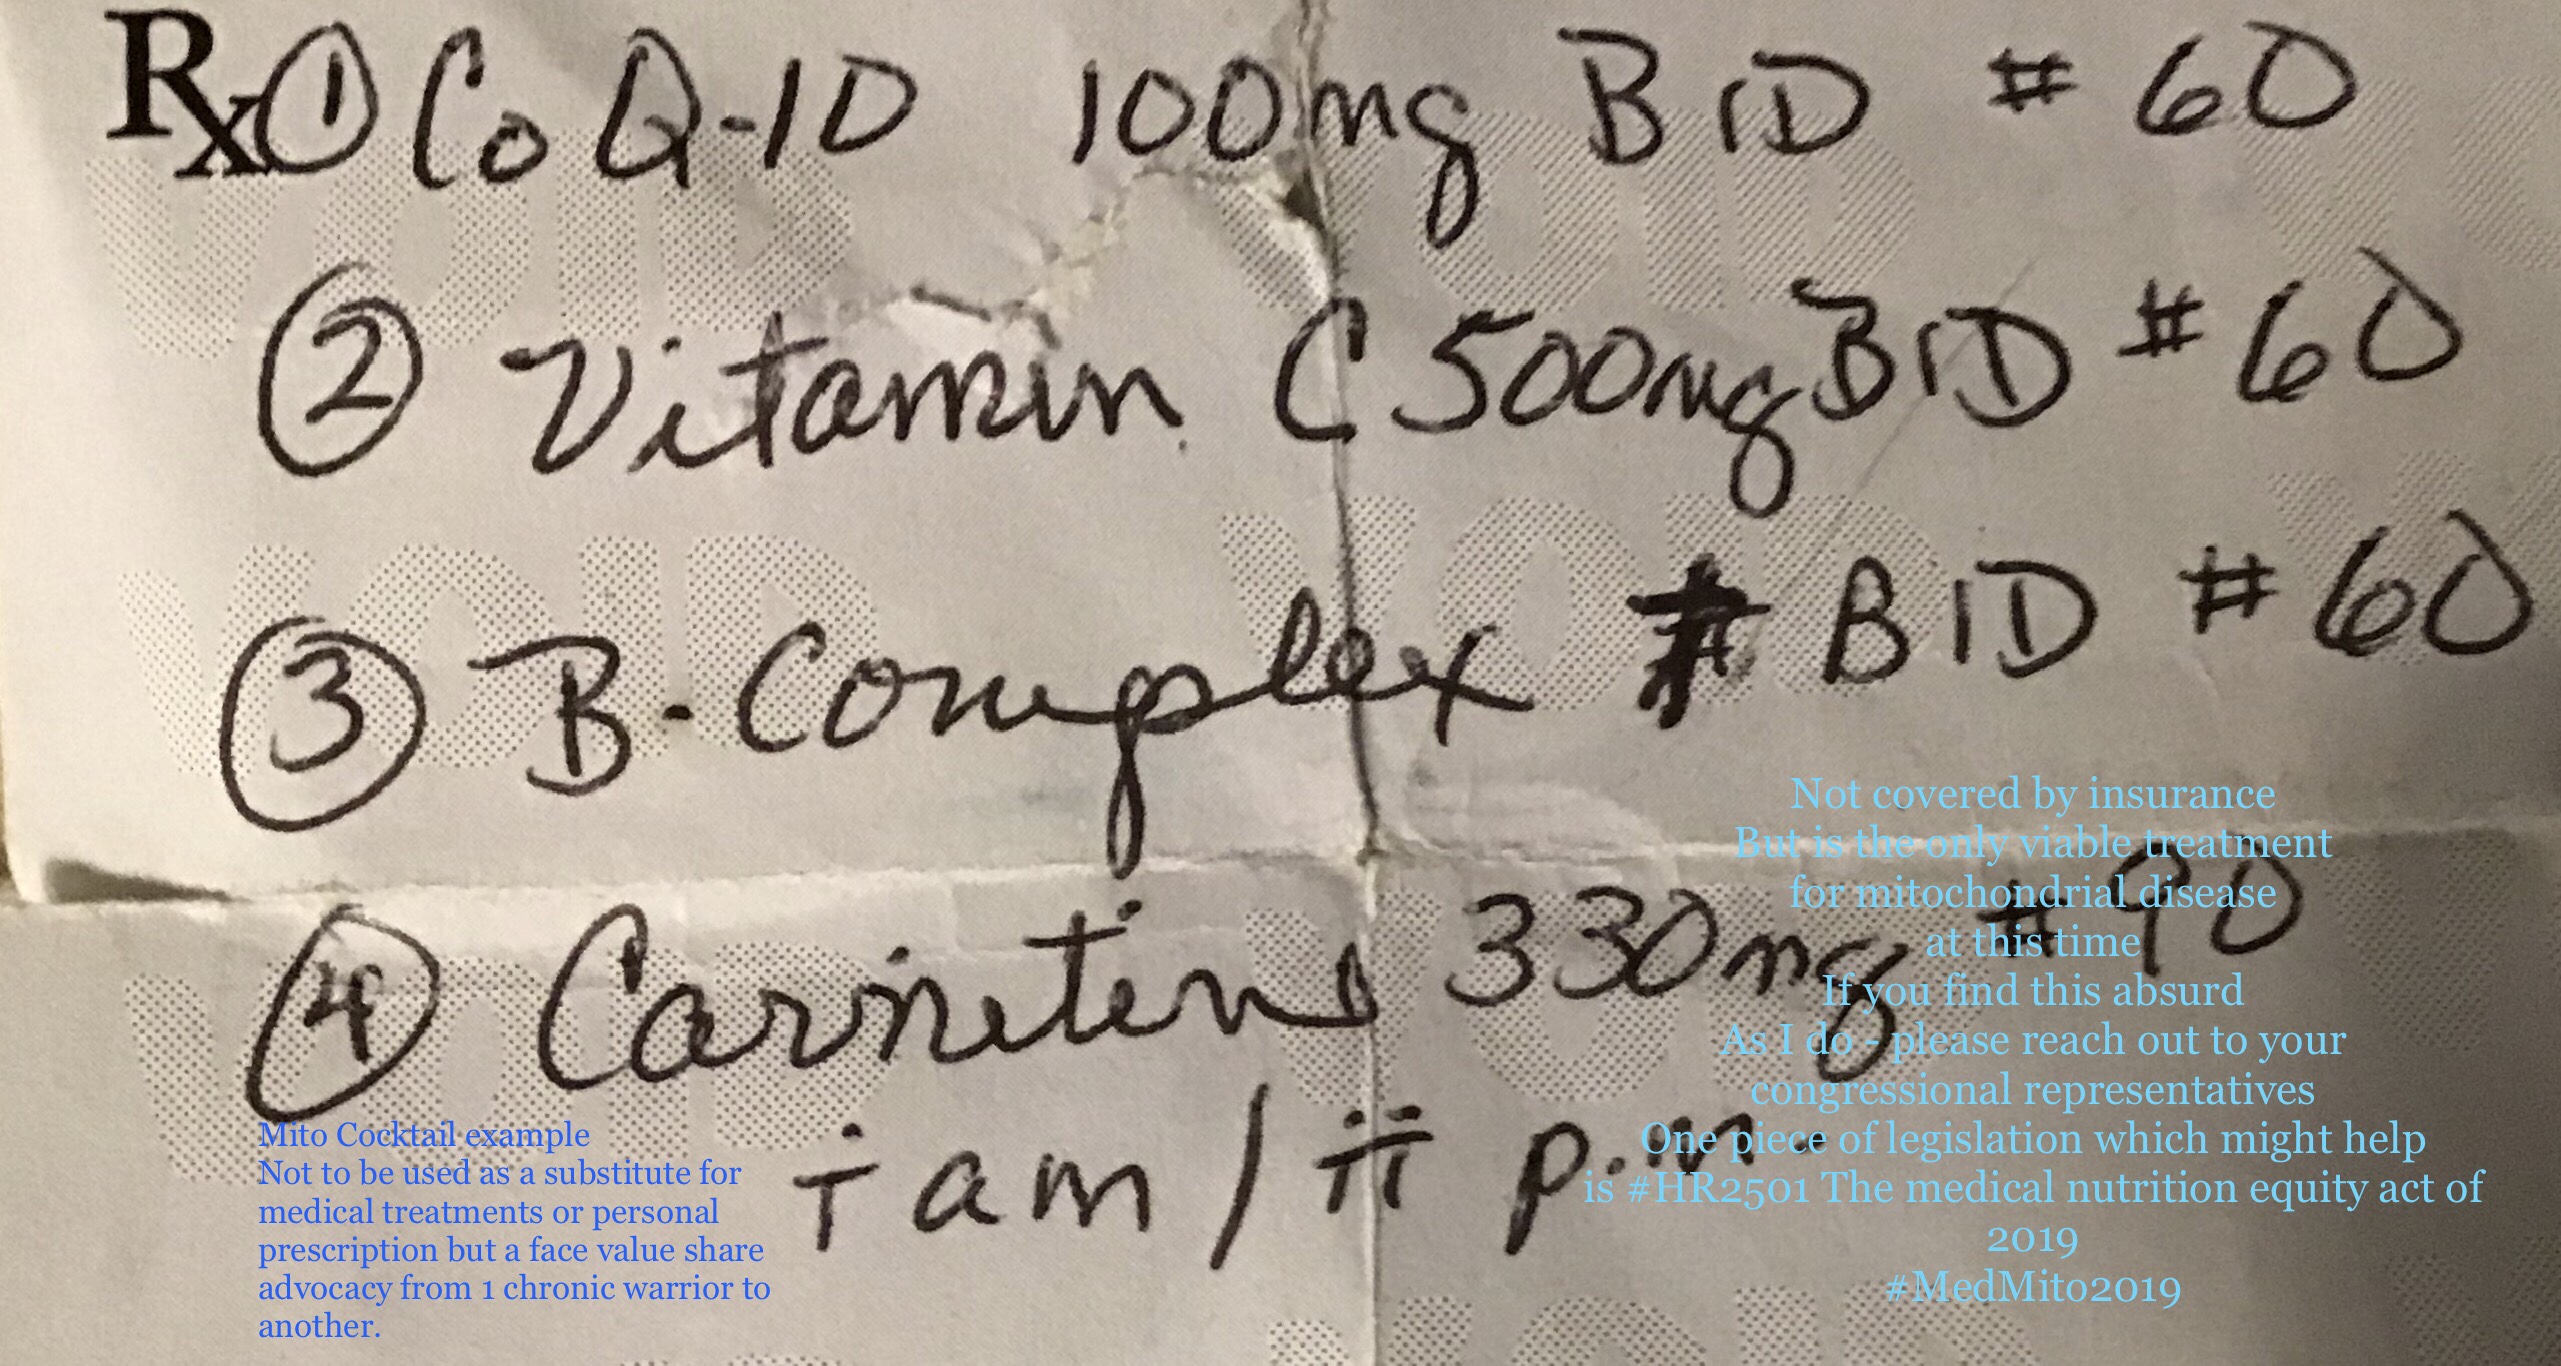 Rx ① Co Q-10 100mg BID # 60
② Vitamin C 500mg BID # 60
③ B-Complex BID # 60
④ Carnitene 330mg # 90
i am / ii p.m
Mito Cocktail example
Not to be used as a substitute for
medical treatments or personal
prescription but a face value share
advocacy from 1 chronic warrior to
another.
Not covered by insurance
But is the only viable treatment
for mitochondrial disease
at this time
If you find this absurd
As I do - please reach out to your
congressional representatives
One piece of legislation which might help
is #HR2501 The medical nutrition equity act of
2019
#MedMito2019
VOID VOID
VOID VOID
VOID VOID